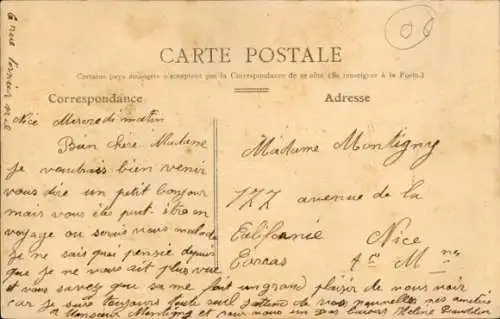 CARTE POSTALE
Certains pays étrangers n'acceptent pas la Correspondance de ce côté (Se renseigner à la Poste.)
Correspondance
Adresse
6 rue
Nice Mercredi matin
Bien chère Madame
je voudrais bien venir
vous dire un petit bonjour
mais vous êtes peut-être en
voyage ou seriez vous malade
je ne sais quoi pensé depuis
que je ne vous ait plus vue
et vous savez que sa me fait un grand plaisir de vous voir
car je suis toujours toute seul de vos nouvelles mes amitiés
à Monsieur Montigny et pour vous un Bas Hélène
Madame Montigny
177 avenue de la
Californie Nice
Corcas A M